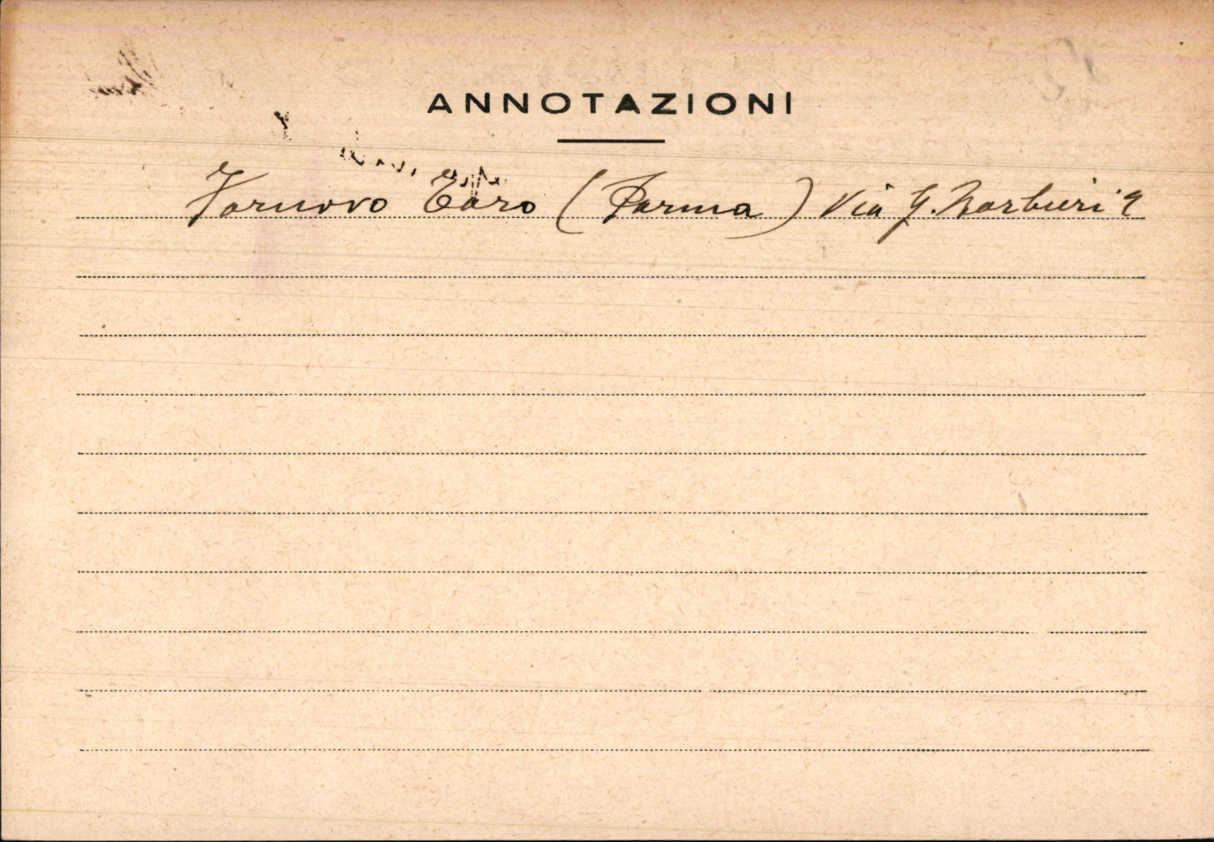 ANNOTAZIONI
Fornovo Taro (Parma) Via G. Barbieri 9